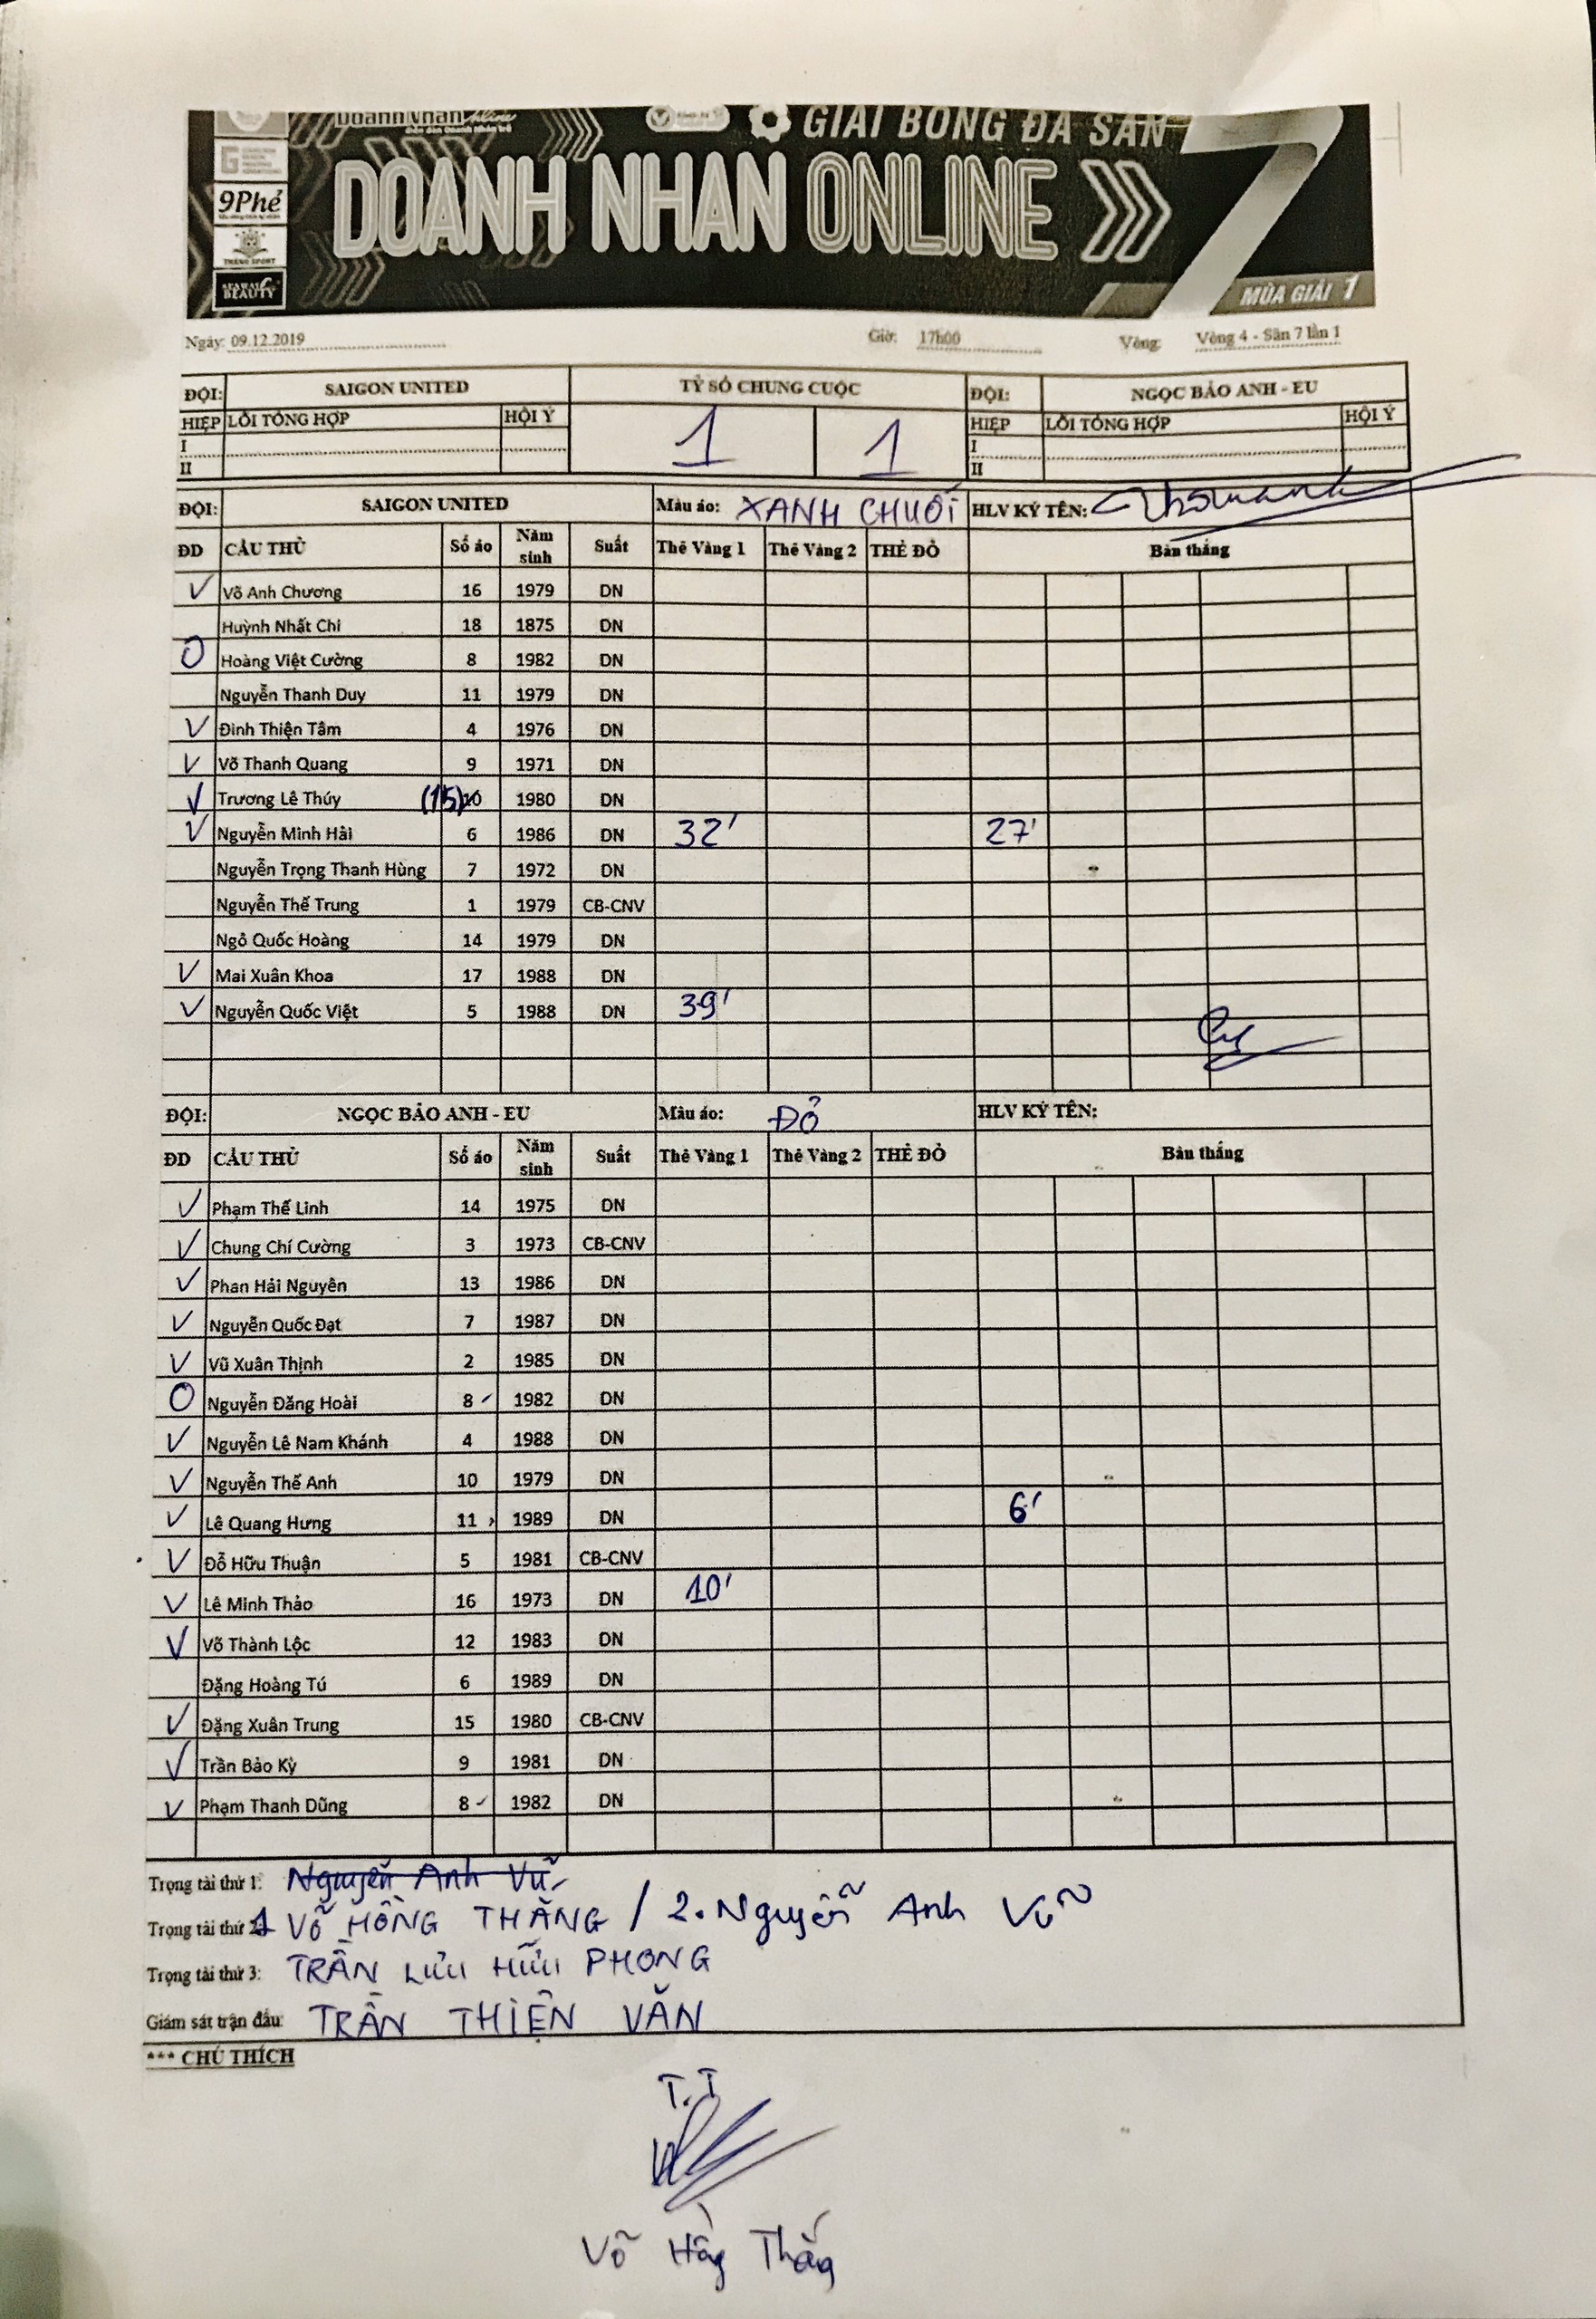 GIẢI BÓNG ĐÁ SÂN 7
9Phẻ
DOANH NHÂN ONLINE
THĂNG SPORT
BEAUTY
MÙA GIẢI 1
Ngày: 09.12.2019 Giờ: 17h00 Vòng: Vòng 4 - Sân 7 lần 1
ĐỘI: SAIGON UNITED TỶ SỐ CHUNG CUỘC ĐỘI: NGỌC BẢO ANH - EU
HIỆP LỖI TỔNG HỢP HỘI Ý 1 1 HIỆP LỖI TỔNG HỢP HỘI Ý
I I
II II
ĐỘI: SAIGON UNITED Màu áo: XANH CHUỐI HLV KÝ TÊN:
ĐD CẦU THỦ Số áo Năm sinh Suất Thẻ Vàng 1 Thẻ Vàng 2 THẺ ĐỎ Bàn thắng
V Võ Anh Chương 16 1979 DN
Huỳnh Nhất Chi 18 1875 DN
O Hoàng Việt Cường 8 1982 DN
Nguyễn Thanh Duy 11 1979 DN
V Đinh Thiện Tâm 4 1976 DN
V Võ Thanh Quang 9 1971 DN
V Trương Lê Thúy (15) 10 1980 DN
V Nguyễn Minh Hải 6 1986 DN 32' 27'
Nguyễn Trọng Thanh Hùng 7 1972 DN
Nguyễn Thế Trung 1 1979 CB-CNV
Ngô Quốc Hoàng 14 1979 DN
V Mai Xuân Khoa 17 1988 DN
V Nguyễn Quốc Việt 5 1988 DN 39'
ĐỘI: NGỌC BẢO ANH - EU Màu áo: ĐỎ HLV KÝ TÊN:
ĐD CẦU THỦ Số áo Năm sinh Suất Thẻ Vàng 1 Thẻ Vàng 2 THẺ ĐỎ Bàn thắng
V Phạm Thế Linh 14 1975 DN
V Chung Chí Cường 3 1973 CB-CNV
V Phan Hải Nguyên 13 1986 DN
V Nguyễn Quốc Đạt 7 1987 DN
V Vũ Xuân Thịnh 2 1985 DN
O Nguyễn Đăng Hoài 8 1982 DN
V Nguyễn Lê Nam Khánh 4 1988 DN
V Nguyễn Thế Anh 10 1979 DN
V Lê Quang Hưng 11 1989 DN 6'
V Đỗ Hữu Thuận 5 1981 CB-CNV
V Lê Minh Thảo 16 1973 DN 10'
V Võ Thành Lộc 12 1983 DN
Đặng Hoàng Tú 6 1989 DN
V Đặng Xuân Trung 15 1980 CB-CNV
V Trần Bảo Kỳ 9 1981 DN
V Phạm Thanh Dũng 8 1982 DN
Trọng tài thứ 1: Nguyễn Anh Vũ
Trọng tài thứ 1 VÕ HỒNG THẮNG / 2. Nguyễn Anh Vũ
Trọng tài thứ 3: TRẦN LƯU HỮU PHONG
Giám sát trận đấu: TRẦN THIỆN VĂN
*** CHÚ THÍCH
T.T
Võ Hồng Thắng